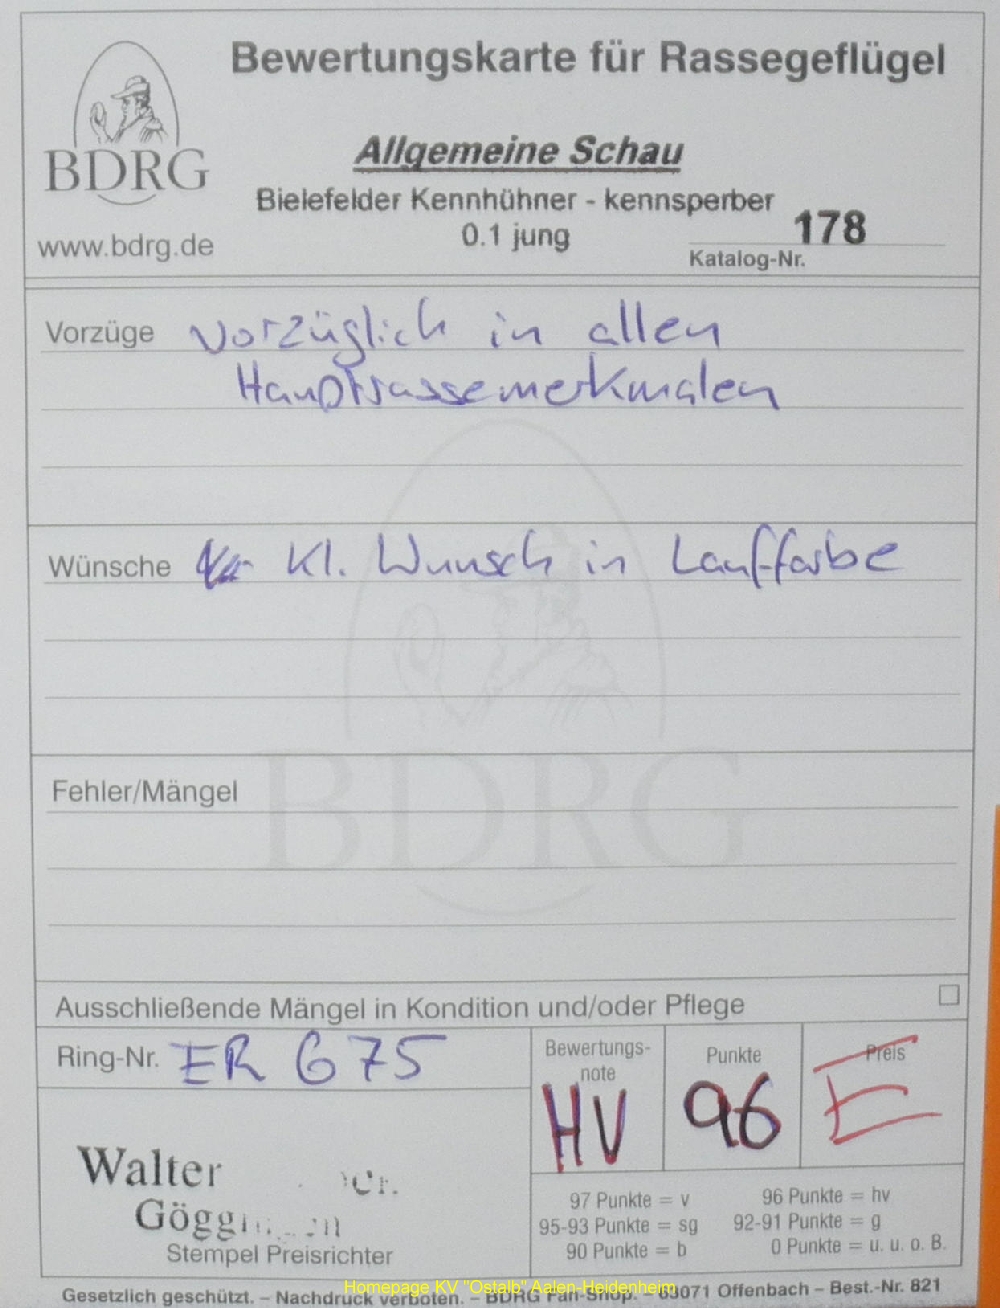 Bewertungskarte für Rassegeflügel
BDRG
www.bdrg.de
Allgemeine Schau
Bielefelder Kennhühner - kennsperber
0.1 jung
178
Katalog-Nr.
Vorzüge vorzüglich in allen
Hauptrassemerkmalen
Wünsche Kl. Wunsch in Lauffarbe
BDRG
Fehler/Mängel
Ausschließende Mängel in Kondition und/oder Pflege
Ring-Nr. ER G75
Bewertungs-
note
HV
Punkte
96
Preis
E
Walter
Stempel Preisrichter
97 Punkte = v 96 Punkte = hv
95-93 Punkte = sg 92-91 Punkte = g
90 Punkte = b 0 Punkte = u. u. o. B.
Gesetzlich geschützt. – Nachdruck verboten. – BDRG Fan-Shop. – 63071 Offenbach – Best.-Nr. 821
Homepage KV "Ostalb" Aalen-Heidenheim